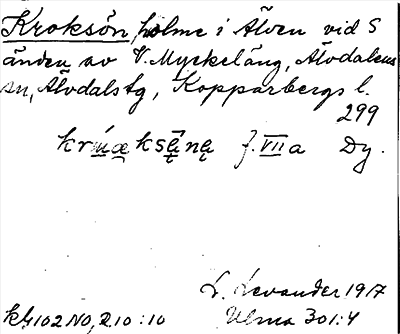 Kroksön, holme i Älven vid S
änden av V. Myckeläng, Älvdalens
sn, Älvdalstg, Kopparbergs l.
299
f. VII a Dy.
L. Levander 1917
Ulma 301:4